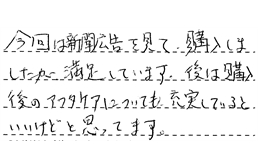 今回は新聞広告を見て、購入しま
したが満足しています。後は購入
後のアフタケアについても充実していると
いいけどと思ってます。